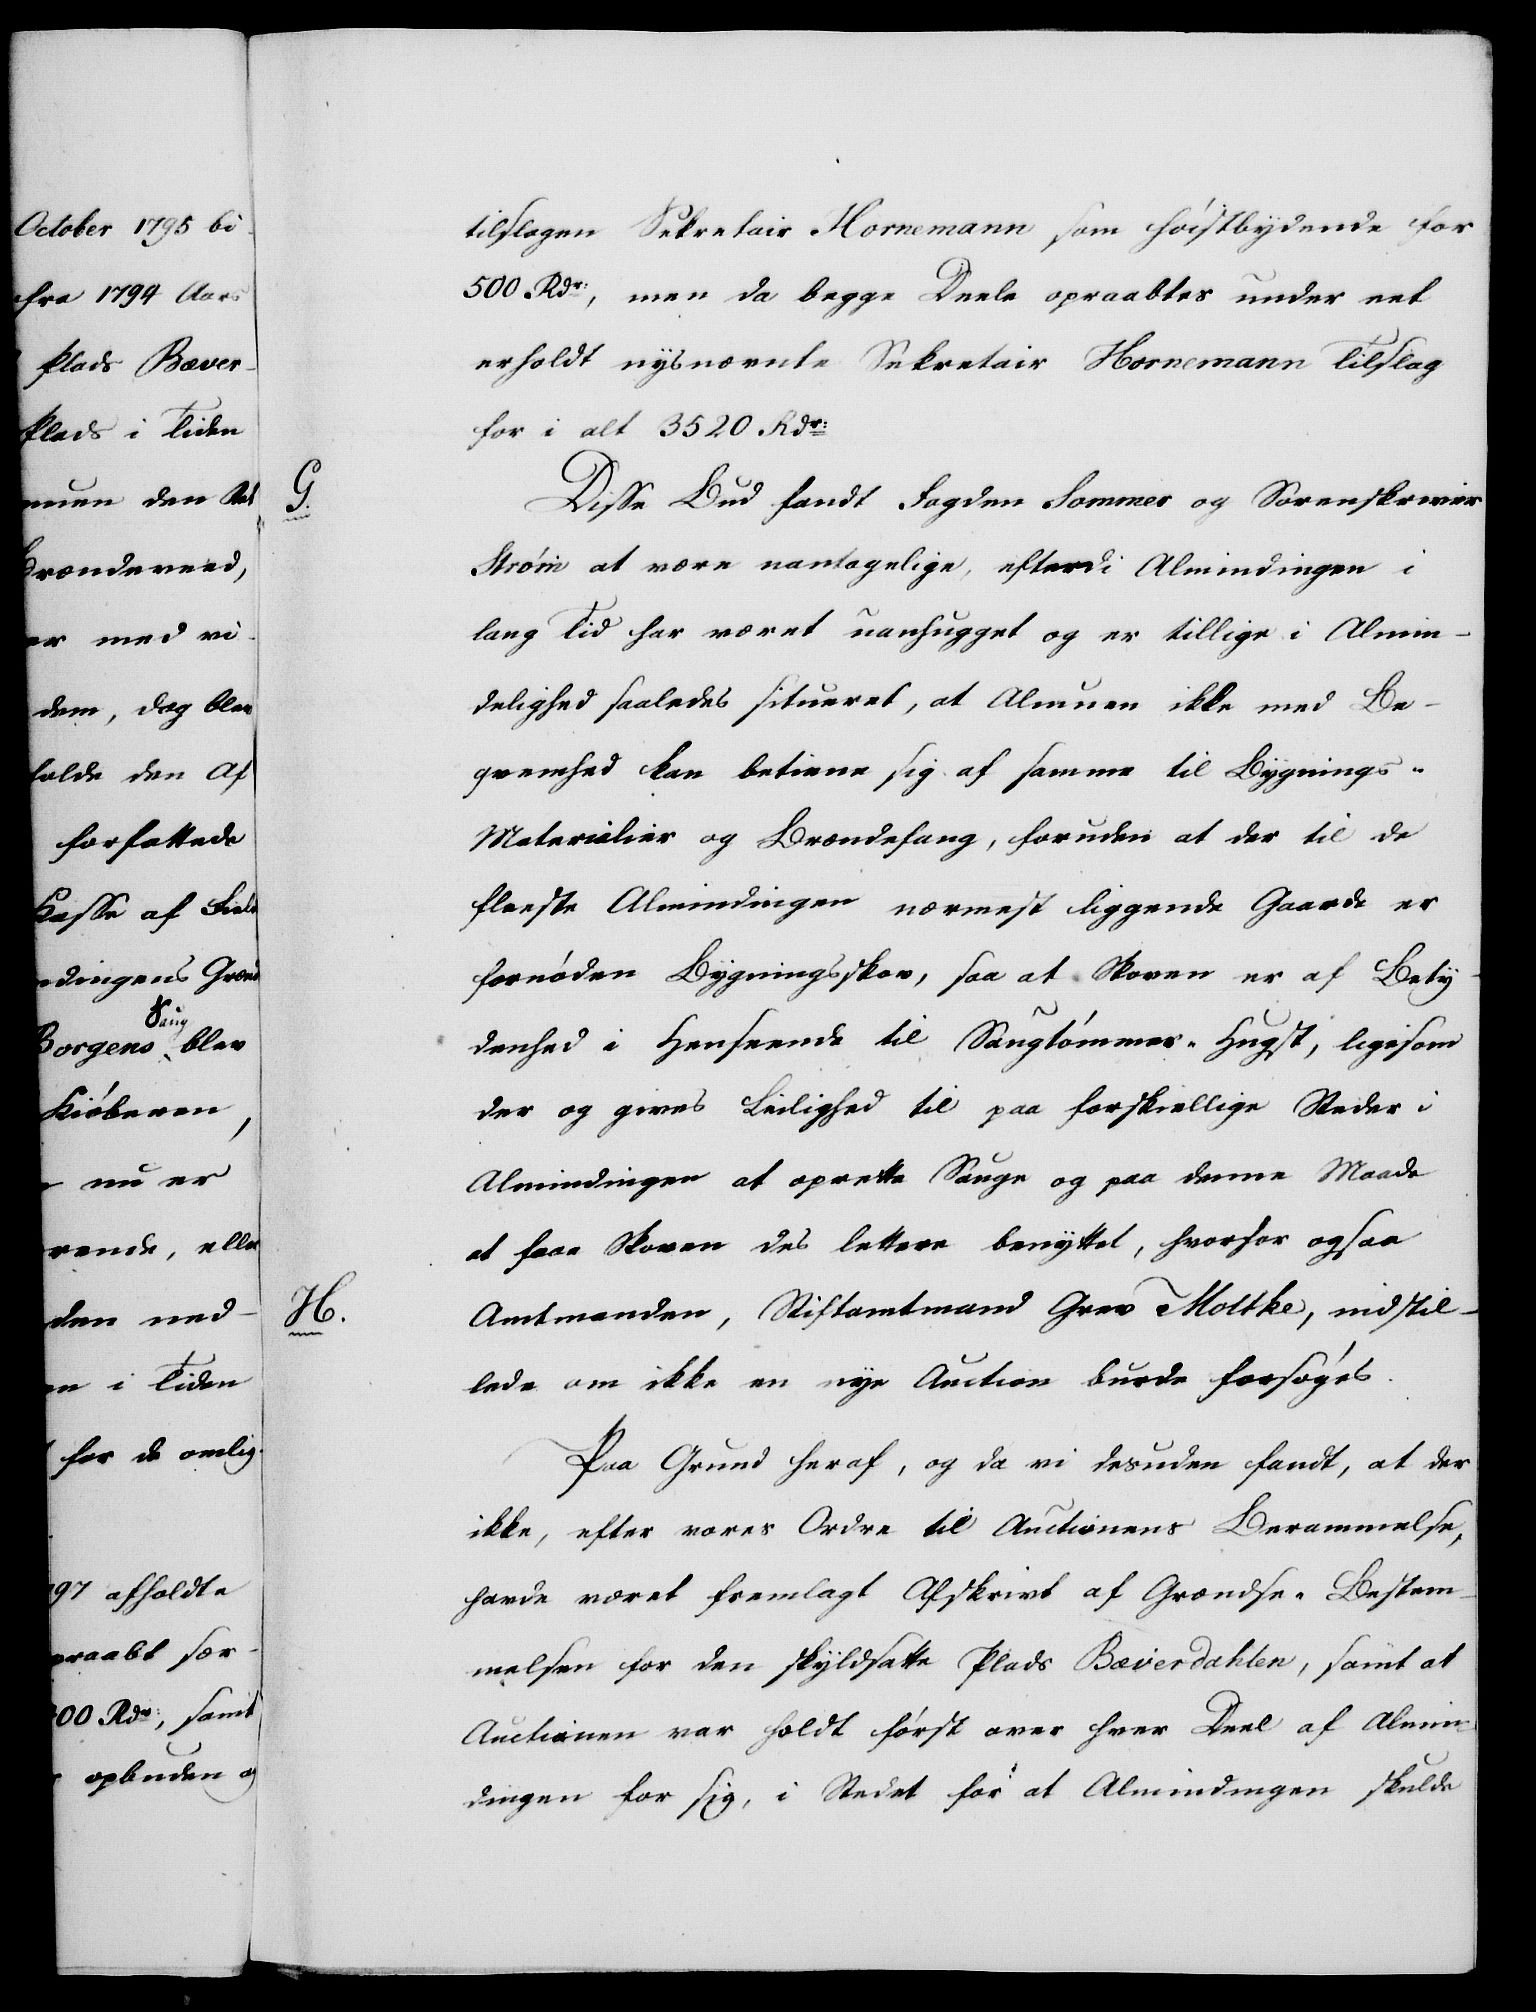 October 1795 bi-
fra 1794 Aars
Plads Bæver-
Plads i Tiden
muen den Ret
Brændeveed,
er med vi-
dem, dog blev
holde den Af
forfattede
Kasse af
dingens Grænd
Saug
Borgens blev
Kiöberen,
nu er
rende, eller
den ned-
en i Tiden
for de omlig-
97 afholdte
praabt sær-
00 Rdr:, samt
opbuden og
tilslagen Sekretair Hornemann som höistbydende for
500 Rdr:, men da begge Deele opraabtes under eet
erholdt nysnævnte Sekretair Hornemann Tilslag
for i alt 3520 Rdr:
G.
Disse Bud fandt Fogden Sommer og Sorenskriver
Ström at være uantagelige, efterdi Almindingen i
lang Tid har været uanhugget og er tillige i Almin-
delighed saaledes situeret, at Almuen ikke med Be-
qvemhed kan betiene sig af samme til Bygnings-
Materialier og Brændefang, foruden at der til de
fleeste Almindingen nærmest liggende Gaarde er
fornöden Bygningsskov, saa at Skoven er af Bety-
denhed i Henseende til Saugtömmer-Hugst, ligesom
der og gives Leilighed til paa forskiellige Steder i
Almindingen at oprette Sauge og paa denne Maade
at faae Skoven des lettere benyttet, hvorfor ogsaa
H.
Amtmanden, Stiftamtmand Grev Moltke, indstil-
lede om ikke en nye Auction burde forsöges.
Paa Grund heraf, og da vi desuden fandt, at der
ikke, efter vores Ordre til Auctionens Berammelse,
havde været fremlagt Afskrivt af Grændse-Bestem-
melsen for den skyldsatte Plads Bæverdahlen, samt at
Auctionen var holdt först over hver Deel af Almin-
dingen for sig, i Stedet for at Almindingen skulde